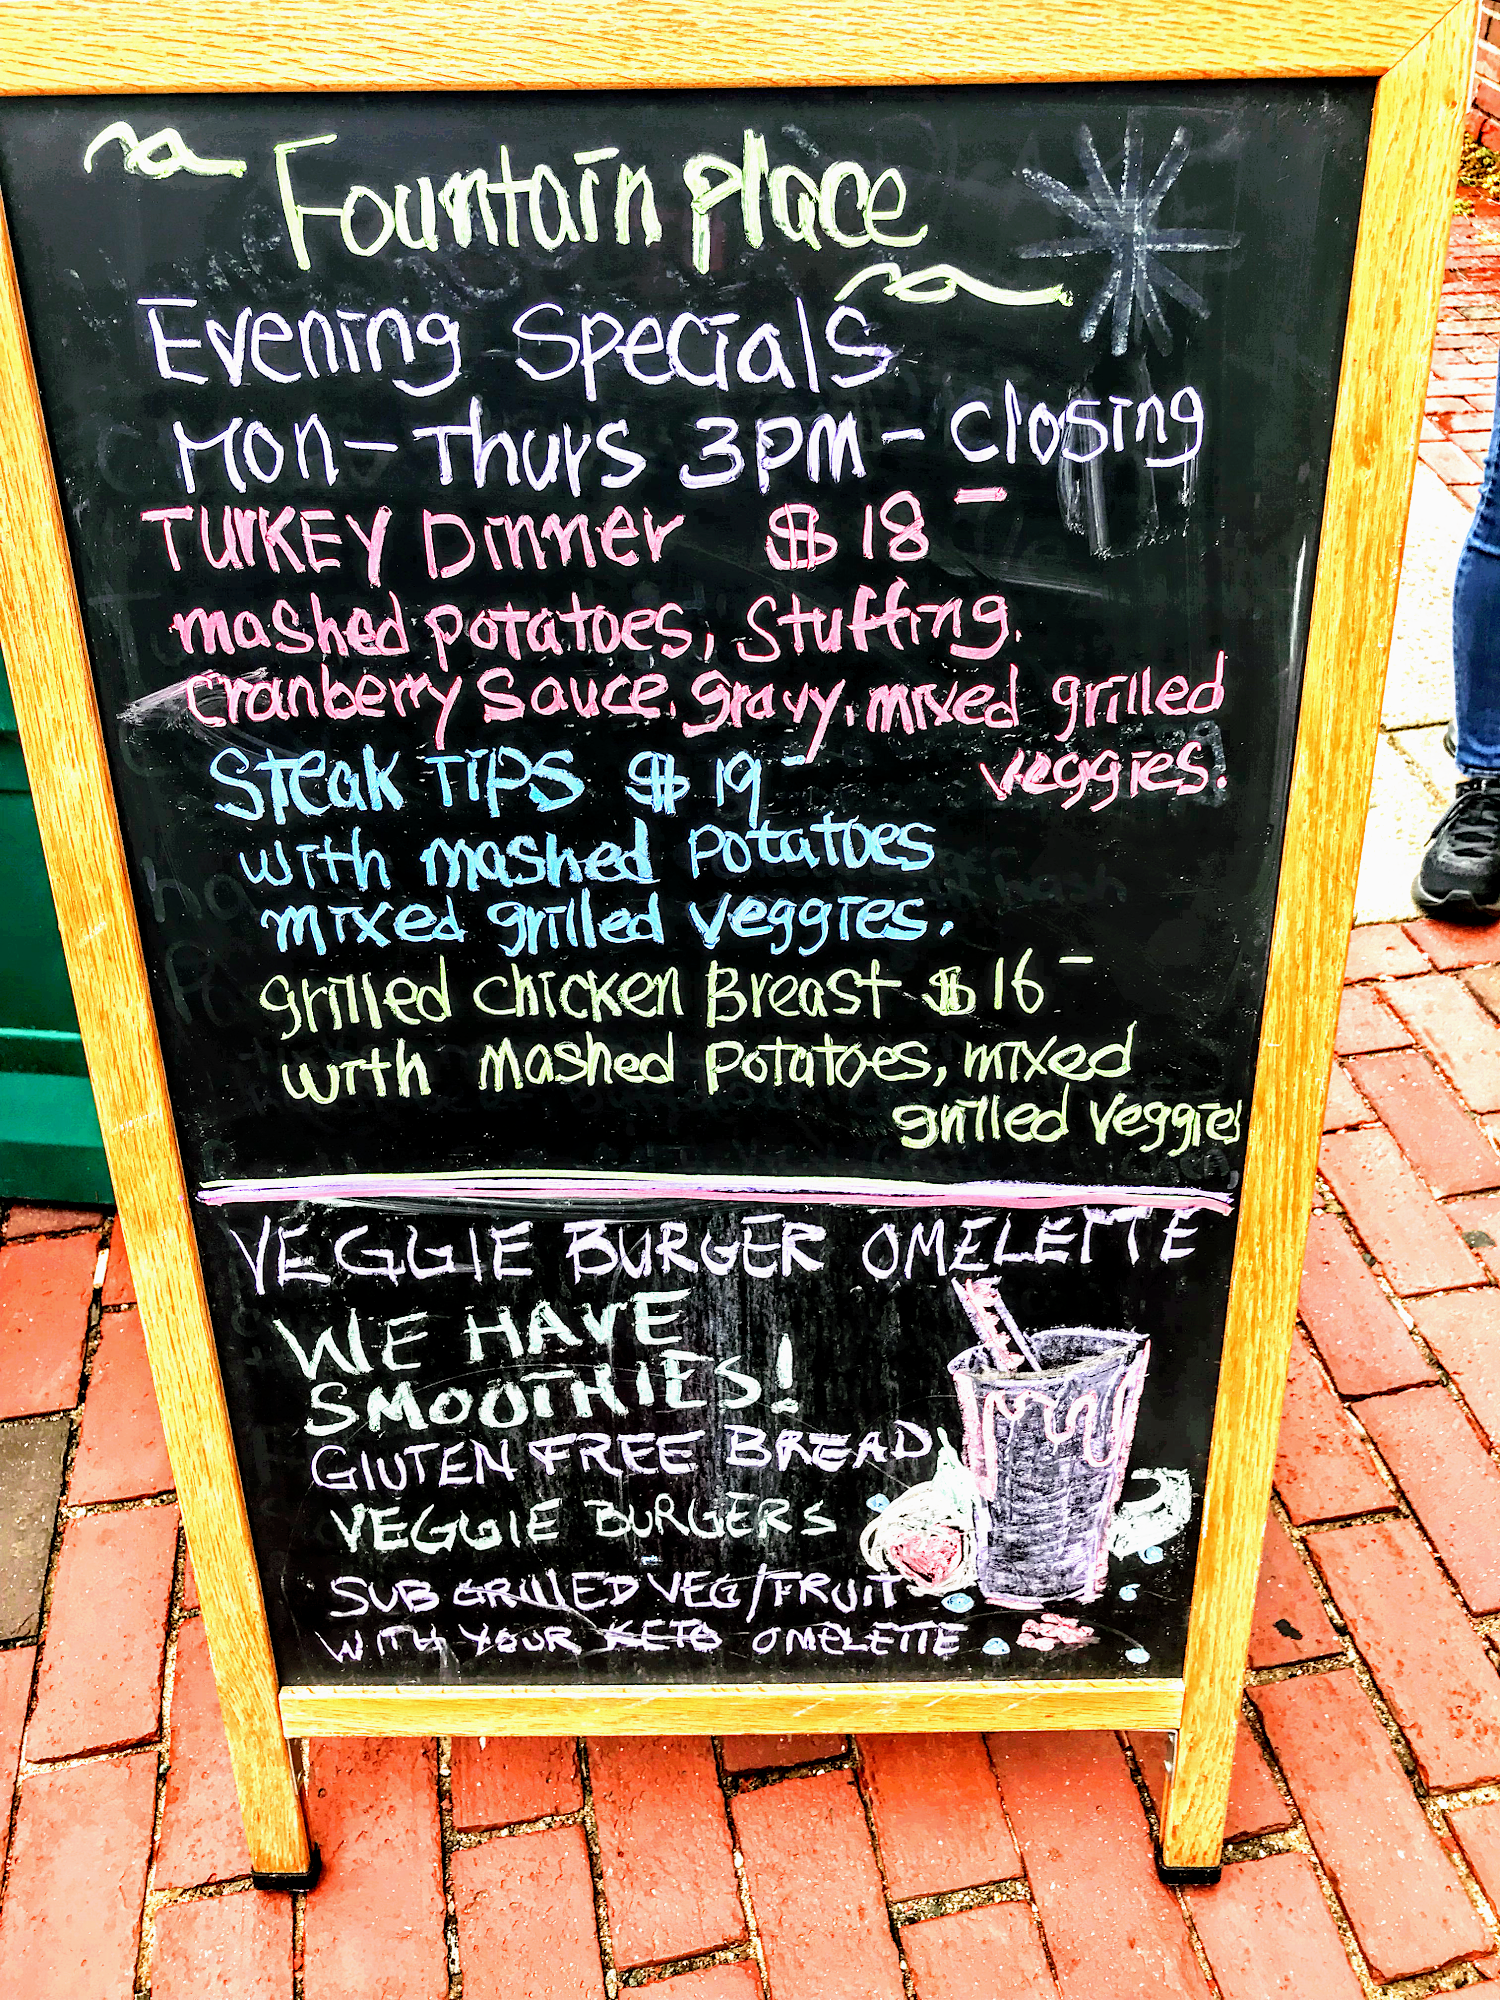 Fountain place
Evening Specials
Mon-Thurs 3PM - closing
TURKEY Dinner $18-
mashed potatoes, Stuffing,
Cranberry Sauce, gravy, mixed grilled
veggies.
Steak TIPS $19-
with mashed potatoes
mixed grilled veggies.
grilled chicken Breast $16-
with mashed potatoes, mixed
grilled veggies
VEGGIE BURGER OMELETTE
WE HAVE
SMOOTHIES!
GLUTEN FREE BREAD
VEGGIE BURGERS
SUB GRILLED VEG/FRUIT
WITH YOUR KETO OMELETTE